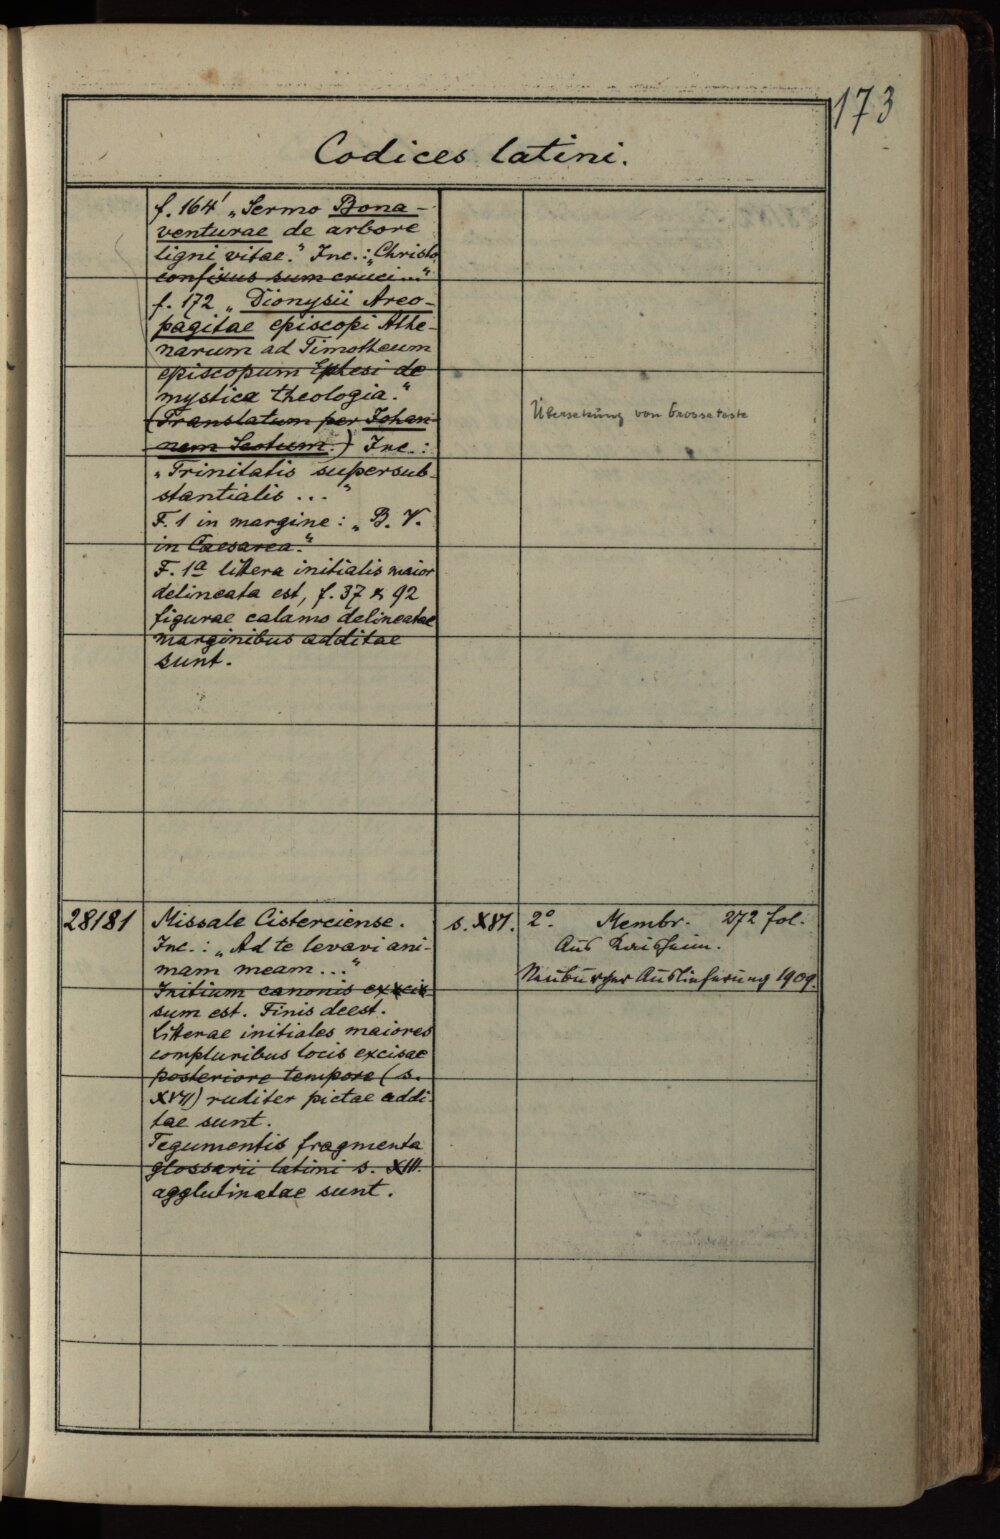 173
Codices latini.
f. 164' „Sermo Bona-
venturae de arbore
ligni vitae.“ Inc.: „Christo
confixus sum cruci...“
f. 172 „Dionysii Areo-
pagitae episcopi Athe-
narum ad Timotheum
episcopum Ephesi de
mystica theologia.“
(Translatum per Johan-
nem Scotum.) Inc.:
„Trinitatis supersub-
stantialis ...“
F. 1 in margine: „B. V.
in Caesarea.“
F. 1a littera initialis maior
delineata est, f. 37 & 92
figurae calamo delineatae
marginibus additae
sunt.
Übersetzung von Grosseteste
28181
Missale Cisterciense.
Inc.: „Ad te levavi ani-
mam meam ...“
Initium canonis exci-
sum est. Finis deest.
Litterae initiales maiores
compluribus locis excisae
posteriore tempore (s.
XVII) ruditer pictae addi-
tae sunt.
Tegumentis fragmenta
glossarii latini s. XIII.
agglutinatae sunt.
s. XVI.
2° Membr. 272 fol.
Aus Kaisheim.
Neuburger Auslieferung 1909.